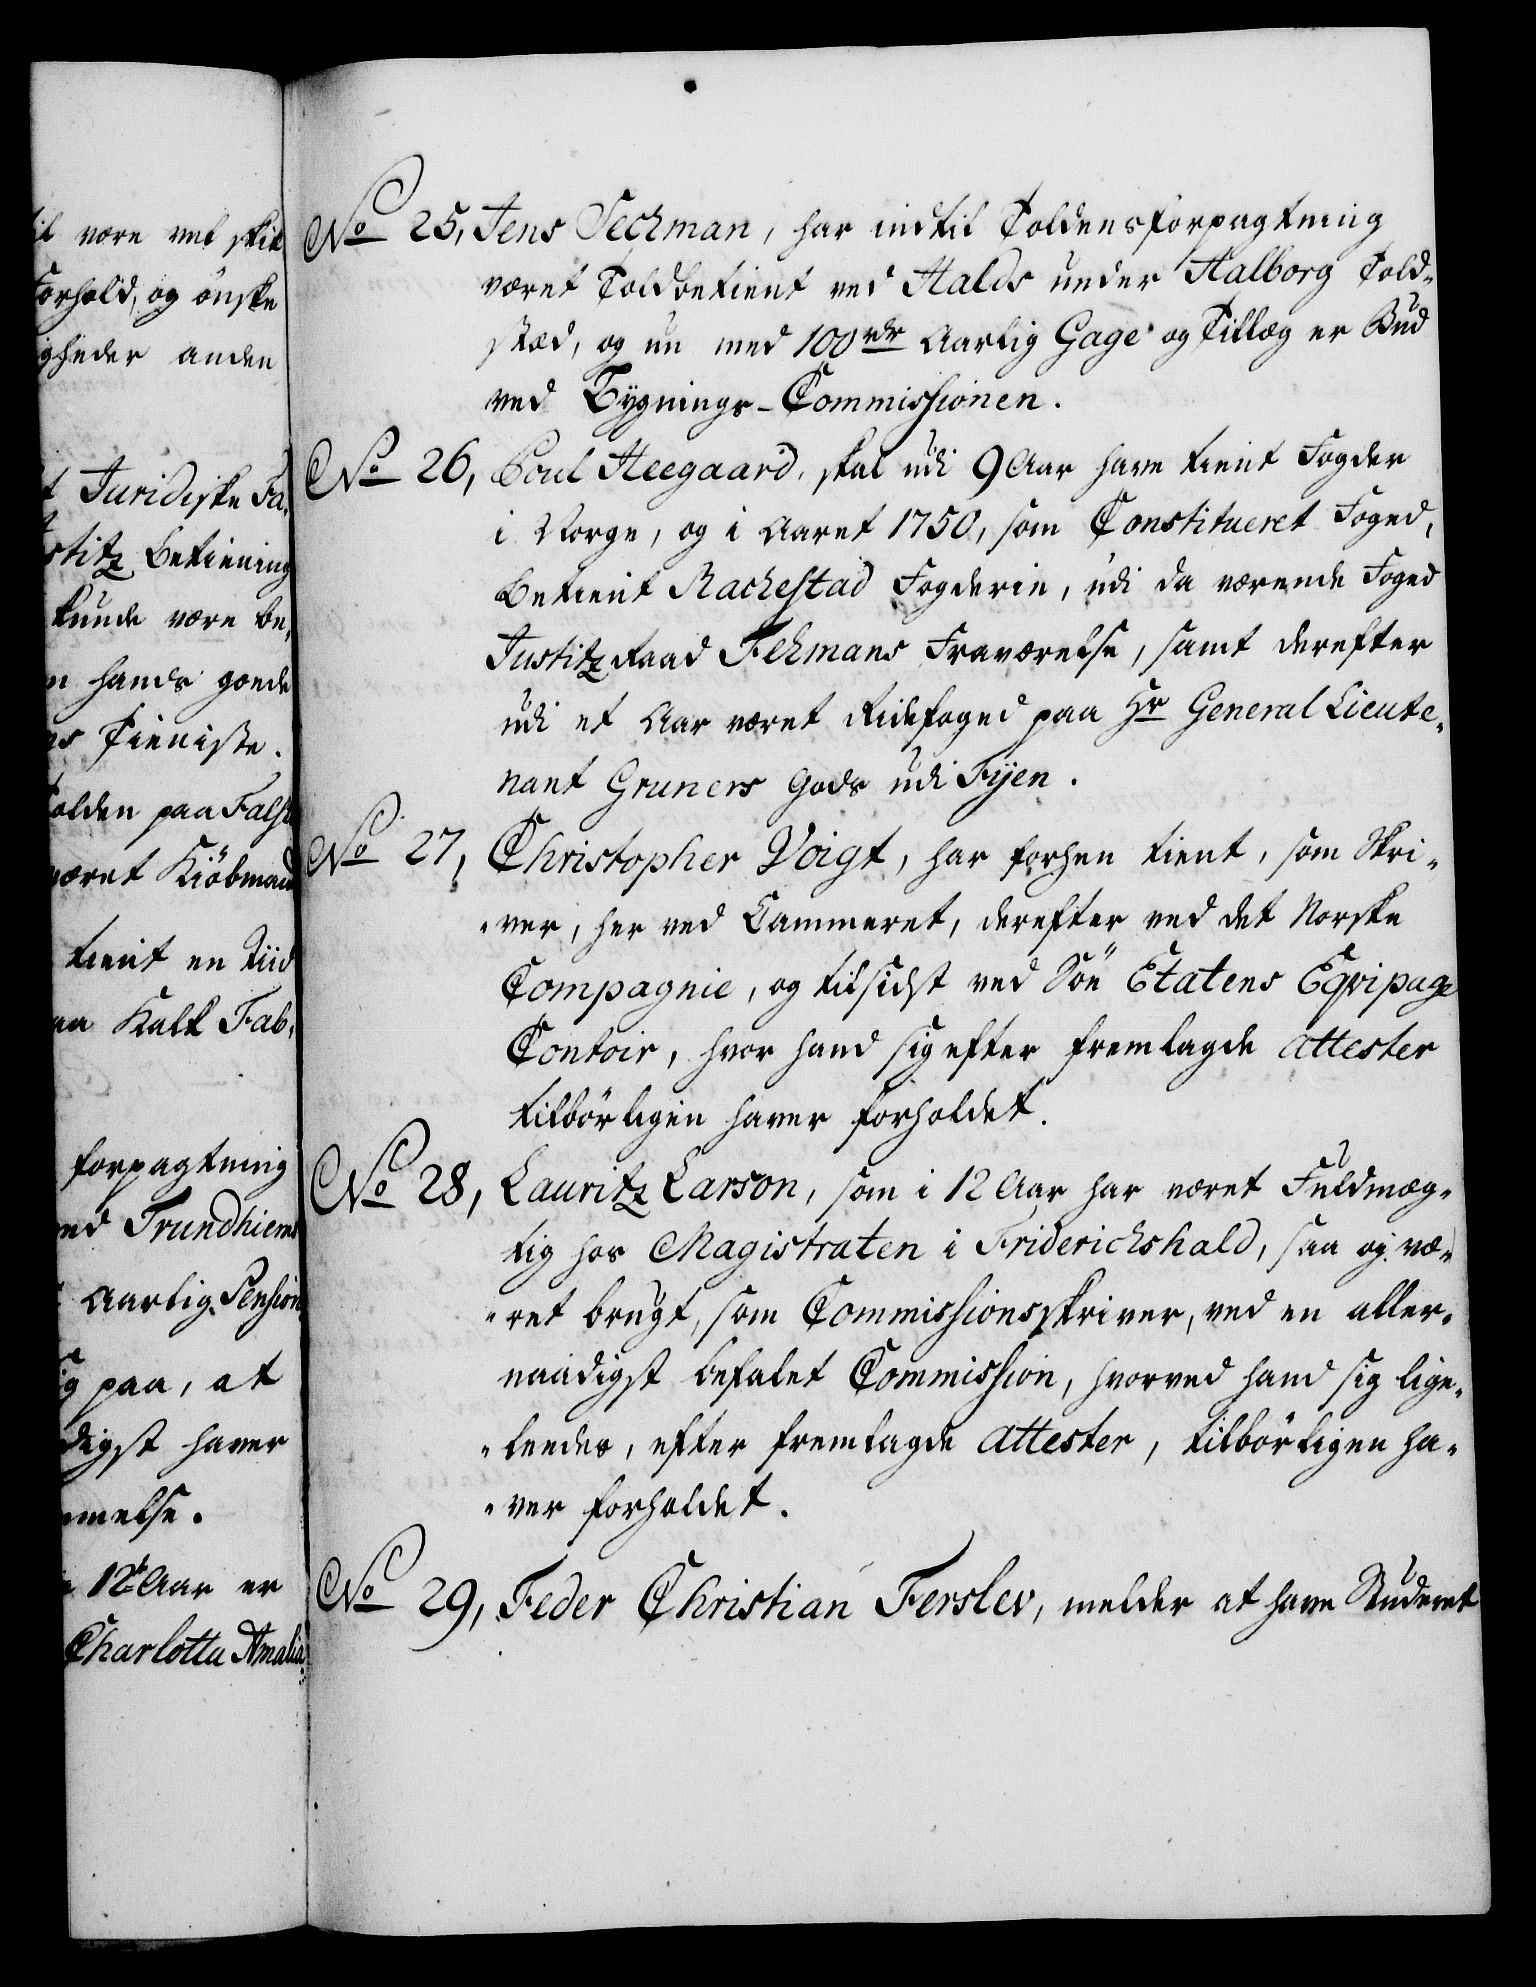 til være vel skik
Forhold, og ønske
igheder anden
t Juridiske Fa-
stitz Betiening
kunde være be-
n hands goede
es Tieniste.
olden paa Falst
været Kiöbmand
tient en Tiid
aa Kalk Fab-
forpagtning
ved Trundhiems
Aarlig Pension
ig paa, at
digst haver
mmelse.
12te Aar er
Charlotta Amalia
No 25, Jens Techman, har indtil Toldens forpagtning
været Toldbetient ved Halds under Aalborg Told-
stæd, og nu med 100 rdr Aarlig Gage og Tillæg er Bud
ved Bygnings-Commissionen.
No 26, Poul Heegaard, skal udi 9 Aar have tient Fogder
i Norge, og i Aaret 1750, som Constitueret Foged,
betient Rachestad Fogderie, udi da værende Foged
Justitz Raad Fehmans Fraværelse, samt derefter
udi et Aar været Ridefoged paa Hr General Lieute-
nant Gruners Gods udi Fyen.
No 27, Christopher Voigt, har forhen tient, som Skri-
-ver, her ved Cammeret, derefter ved det Norske
Compagnie, og tilsidst ved Söe Etatens Eqvipage
Contoir, hvor hand sig efter fremlagde Attester
tilbörligen haver forholdet.
No 28, Lauritz Larson, som i 12 Aar har været Fuldmæg-
tig hos Magistraten i Friderichshald, saa og væ-
-ret brugt, som Commissionsskriver, ved en aller-
naadigst befalet Commission, hvorved hand sig lige-
-leedes, efter fremlagde Attester, tilbörligen ha-
-ver forholdet.
No 29, Peder Christian Ferslev, melder at have Studeret